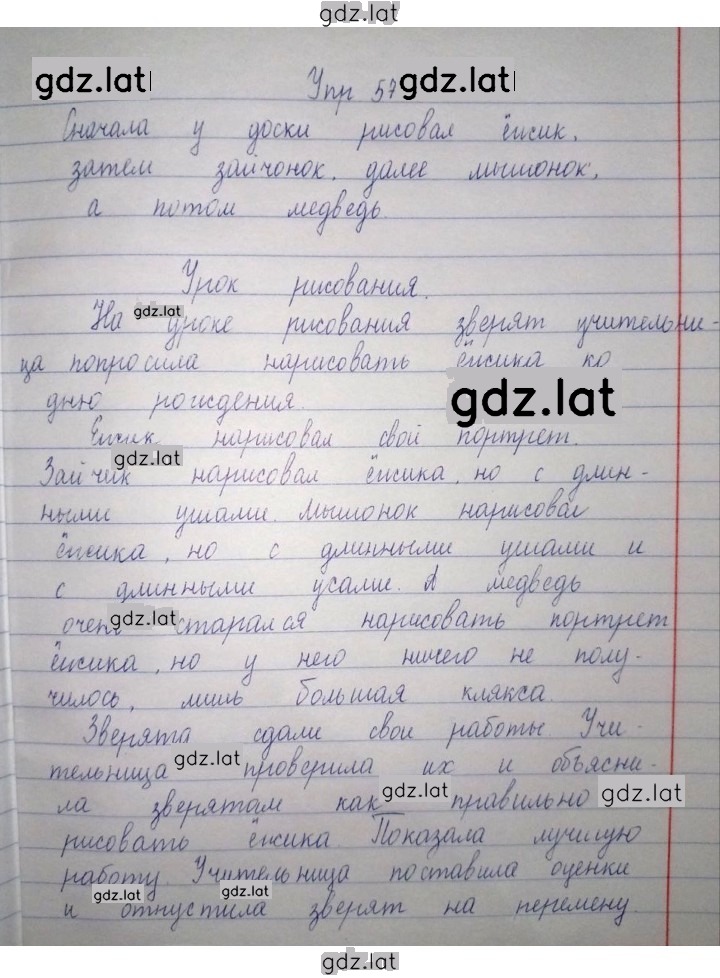 gdz.lat
gdz.lat Упр 57 gdz.lat
Сначала у доски рисовал ёжик,
затем зайчонок, далее мышонок,
а потом медведь.
Урок рисования.
На gdz.lat уроке рисования зверят учительни-
ца попросила нарисовать ёжика ко
дню рождения. gdz.lat
Ёжик нарисовал свой портрет.
Зайчик gdz.lat нарисовал ёжика, но с длин-
ными ушами. Мышонок нарисовал
ёжика, но с длинными ушами и
с длинными усами. А медведь
очень gdz.lat старался нарисовать портрет
ёжика, но у него ничего не полу-
чилось, лишь большая клякса.
Зверята сдали свои работы. Учи-
тельница gdz.lat проверила их и объясни-
ла зверятам как gdz.lat правильно gdz.lat
рисовать ёжика. Показала лучшую
работу. Учительница поставила оценки
gdz.lat gdz.lat
и отпустила зверят на перемену.
gdz.lat